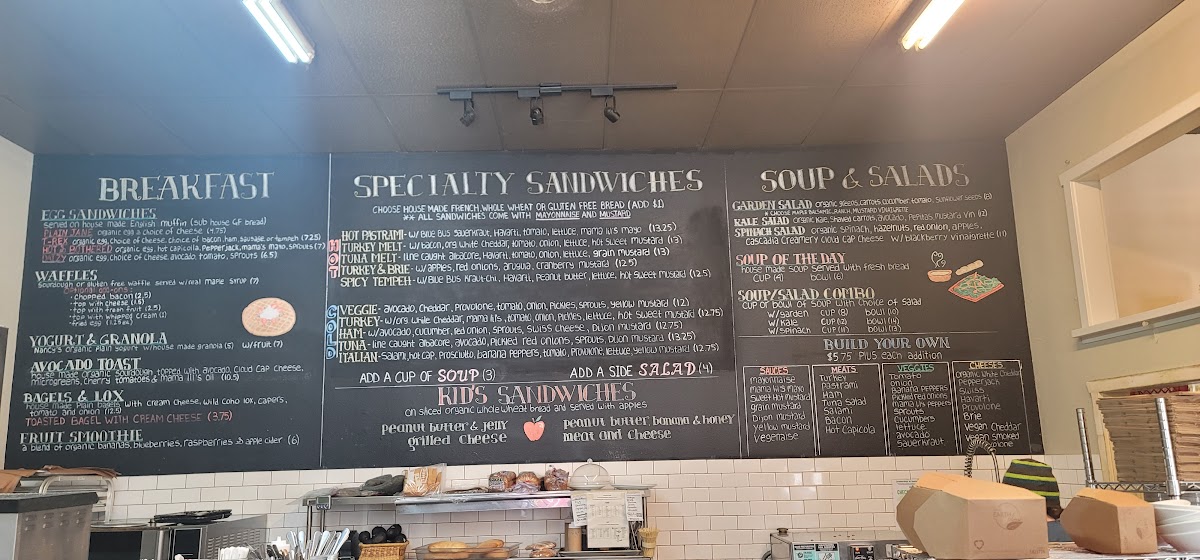 BREAKFAST
EGG SANDWICHES
served on house made English muffin (sub house GF bread)
PLAIN JANE organic egg & choice of cheese (4.75)
T-REX organic egg, choice of cheese, choice of bacon, ham, sausage, or tempeh (7.25)
HOT & BOTHERED organic egg, hot capicolla, Pepperjack, mama's mayo, sprouts (7)
organic egg, choice of cheese, avocado, tomato, sprouts (6.5)
WAFFLES
sourdough or gluten free waffle served w/real maple syrup (7)
optional add-ons:
-chopped bacon (2.5)
-top with cheese (1.5)
-top with fresh fruit (2.5)
-top with whipped cream (1)
-fried egg (1.25 ea)
YOGURT & GRANOLA
Nancy's organic plain yogurt w/house made granola (5) w/fruit (7)
AVOCADO TOAST
house made organic sourdough topped with avocado, Cloud Cap cheese,
microgreens, cherry tomatoes & mama lil's oil (10.5)
BAGELS & LOX
house made plain bagels with cream cheese, wild coho lox, capers,
tomato and onion (12.5)
TOASTED BAGEL WITH CREAM CHEESE (3.75)
FRUIT SMOOTHIE
a blend of organic bananas, blueberries, raspberries & apple cider (6)
SPECIALTY SANDWICHES
CHOOSE HOUSE MADE FRENCH, WHOLE WHEAT OR GLUTEN FREE BREAD (ADD $1)
** ALL SANDWICHES COME WITH MAYONNAISE AND MUSTARD
HOT
HOT PASTRAMI- w/Blue Bus sauerkraut, Havarti, tomato, lettuce, mama lil's mayo (13.25)
TURKEY MELT- w/bacon, org white cheddar, tomato, onion, lettuce, hot sweet mustard (13)
TUNA MELT- line caught albacore, Havarti, tomato, onion, lettuce, grain mustard (13)
TURKEY & BRIE- w/apples, red onions, arugula, cranberry mustard (12.5)
SPICY TEMPEH- w/Blue Bus Kraut-chi, Havarti, Peanut butter, lettuce, hot sweet mustard (12.5)
COLD
VEGGIE- avocado, cheddar, Provolone, tomato, onion, Pickles, sprouts, yellow mustard (12)
TURKEY- w/org white cheddar, mama lil's, tomato, onion, Pickles, lettuce, hot sweet mustard (12.75)
HAM- w/avocado, cucumber, red onion, sprouts, swiss cheese, Dijon mustard (12.75)
TUNA- line caught albacore, avocado, pickled red onions, sprouts, Dijon mustard (13.25)
ITALIAN- salami, hot cap, Prosciutto, banana peppers, tomato, Provolone, lettuce, yellow mustard (12.75)
ADD A CUP OF SOUP (3) ADD A SIDE SALAD (4)
KID'S SANDWICHES
on sliced organic whole wheat bread and served with apples
peanut butter & jelly
grilled cheese
peanut butter, banana & honey
meat and cheese
SOUP & SALADS
GARDEN SALAD organic greens, carrots, cucumber, tomato, sunflower seeds (8)
* CHOOSE MAPLE BALSAMIC, RANCH, MUSTARD VINAIGRETTE
KALE SALAD organic kale, shaved carrots, avocado, pepitas, mustard vin (12)
SPINACH SALAD organic spinach, hazelnuts, red onion, apples,
Cascadia Creamery Cloud Cap Cheese w/ blackberry vinaigrette (11)
SOUP OF THE DAY
house made soup served with fresh bread
CUP (4) bowl (6)
SOUP/SALAD COMBO
cup or bowl of soup with choice of salad
w/Garden CUP (8) bowl (10)
w/Kale CUP (12) bowl (14)
w/Spinach CUP (11) bowl (13)
BUILD YOUR OWN
$5.75 Plus each addition
SAUCES
mayonnaise
mama lil's mayo
sweet hot mustard
grain mustard
Dijon mustard
yellow mustard
vegenaise
MEATS
Turkey
Pastrami
Ham
Tuna Salad
Salami
Bacon
Hot Capicola
VEGGIES
Tomato
onion
Banana Peppers
Pickled red onions
mama lil's Peppers
sprouts
cucumbers
lettuce
avocado
sauerkraut
CHEESES
organic White Cheddar
Pepperjack
Swiss
Havarti
Provolone
Brie
vegan cheddar
vegan smoked
provolone